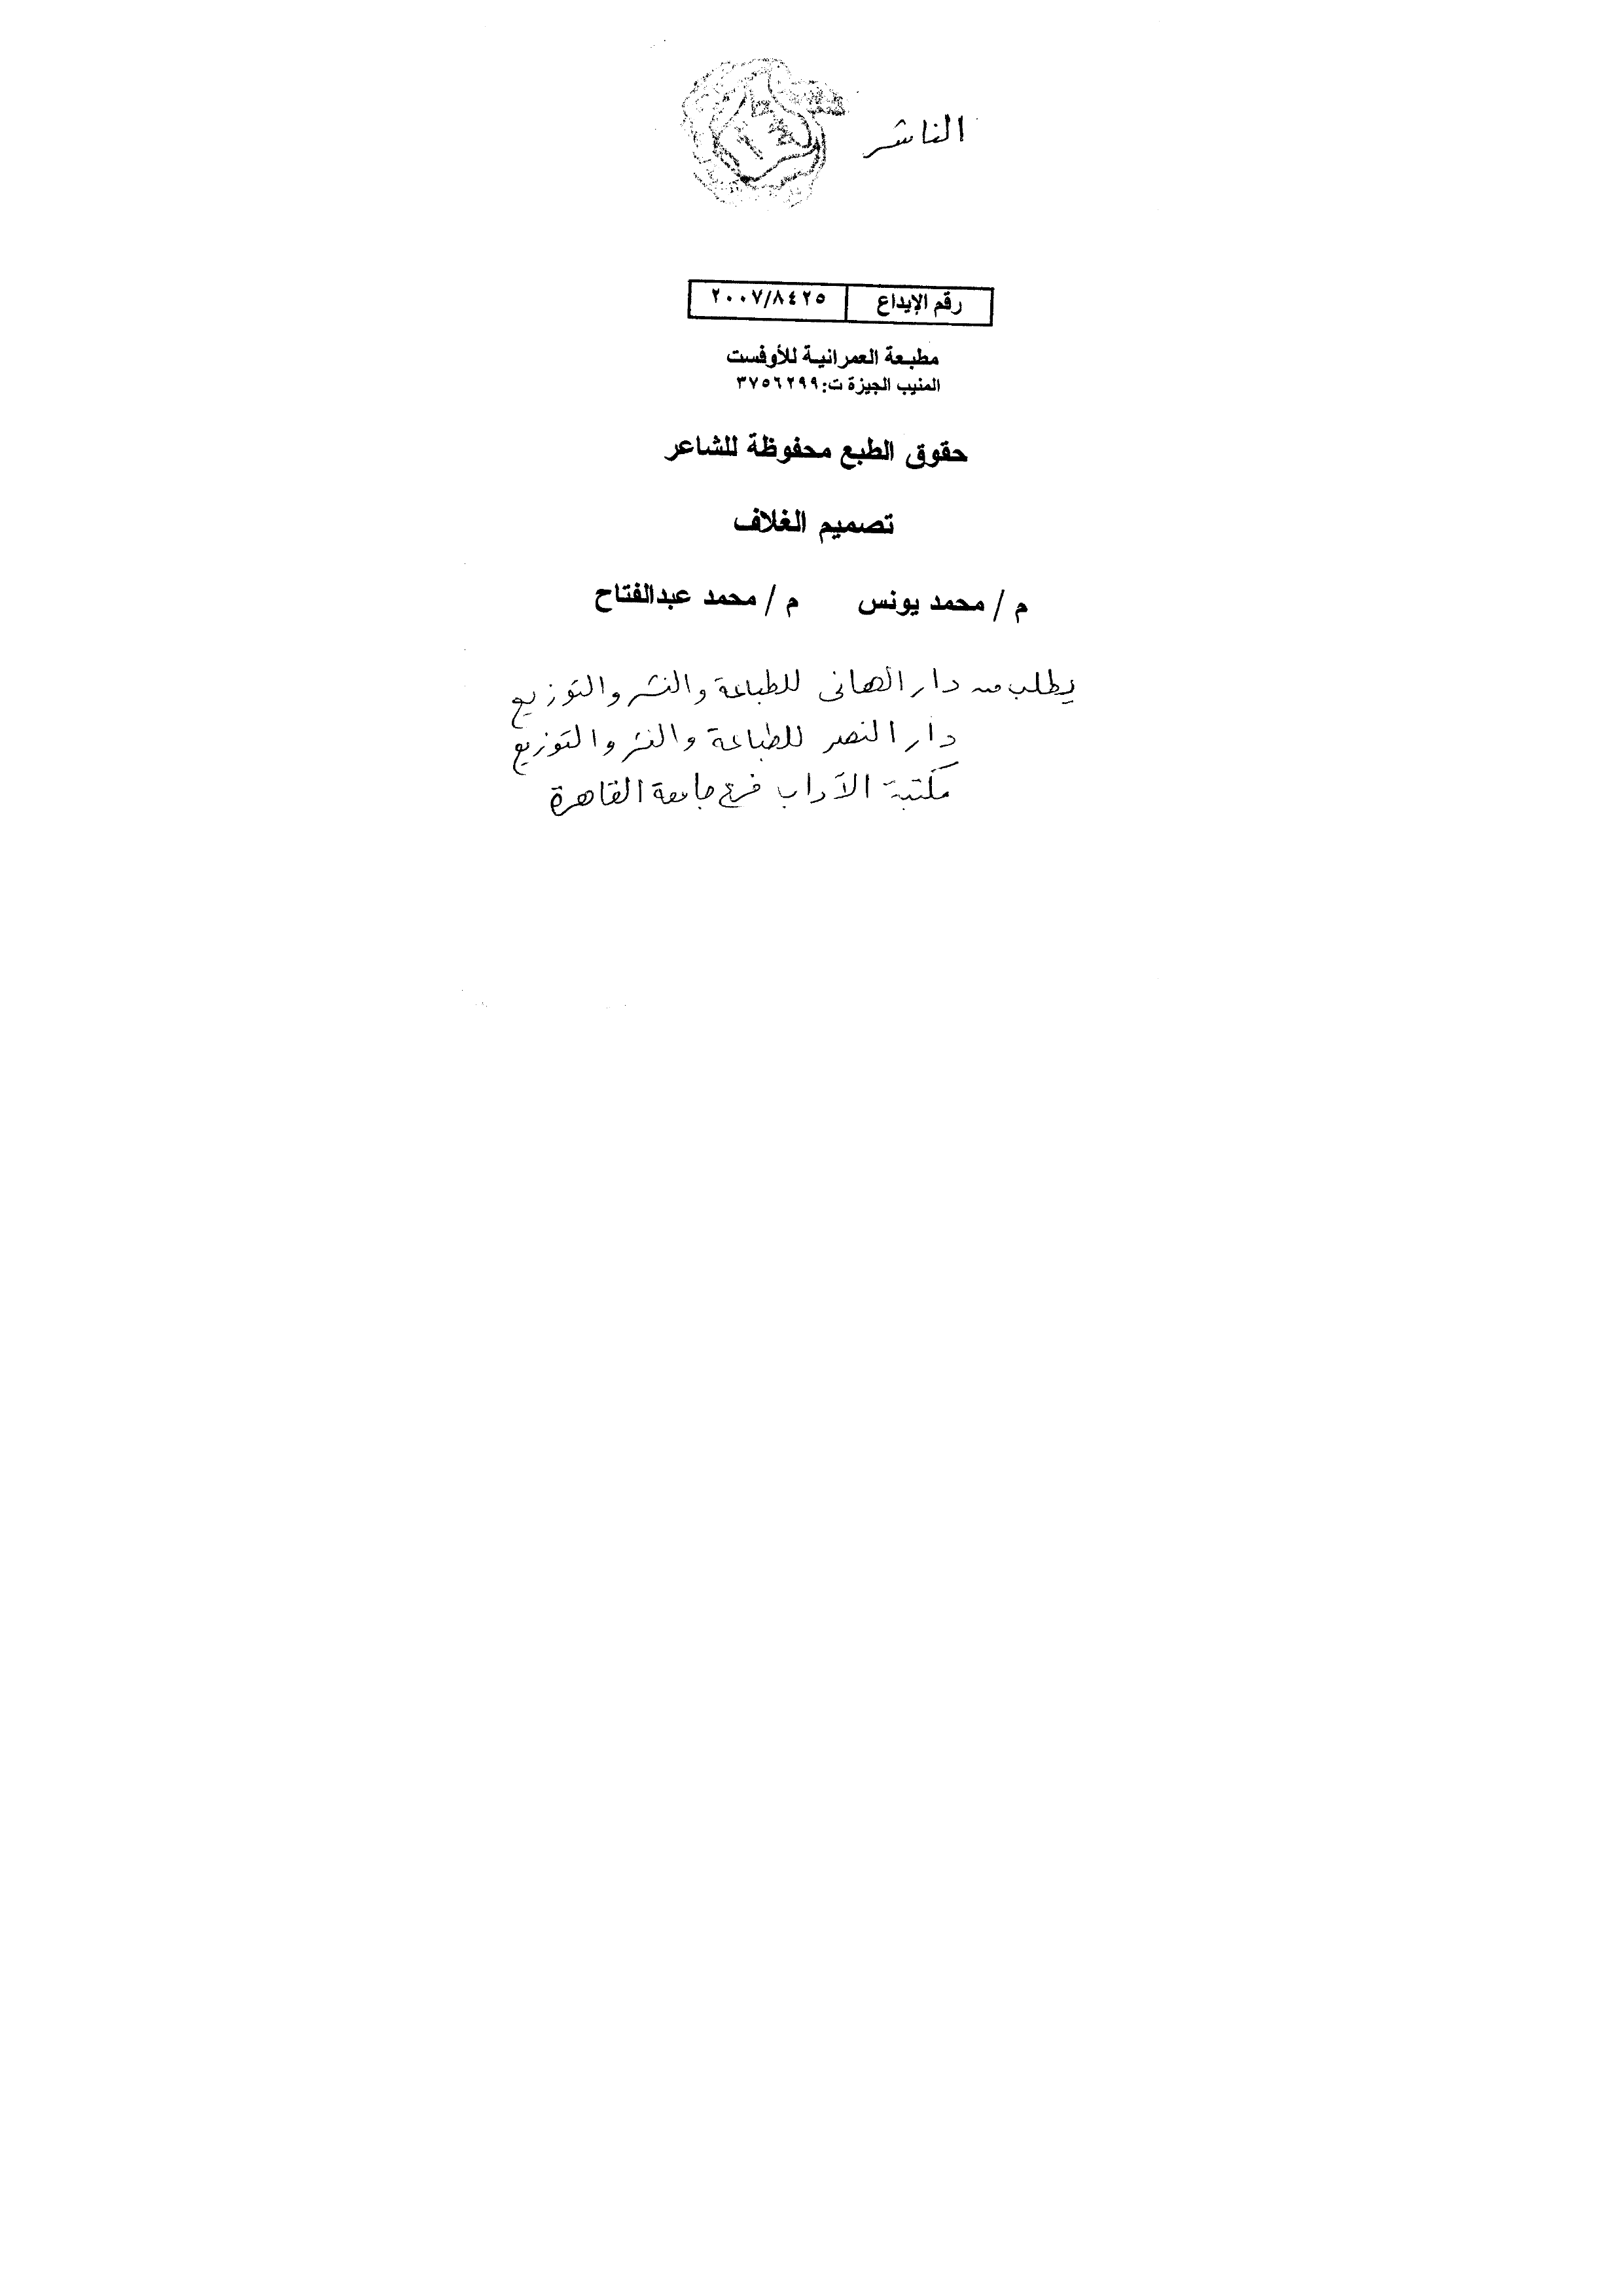 الناشر
رقم الإيداع ٢٠٠٧/٨٤٢٥
مطبعة العمرانية للأوفست
المنيب الجيزة ت: ٣٧٥٦٢٩٩
حقوق الطبع محفوظة للشاعر
تصميم الغلاف
م / محمد يونس م / محمد عبدالفتاح
يطلب من دار الهانى للطباعة والنشر والتوزيع
دار النصر للطباعة والنشر والتوزيع
مكتبة الآداب فرع جامعة القاهرة